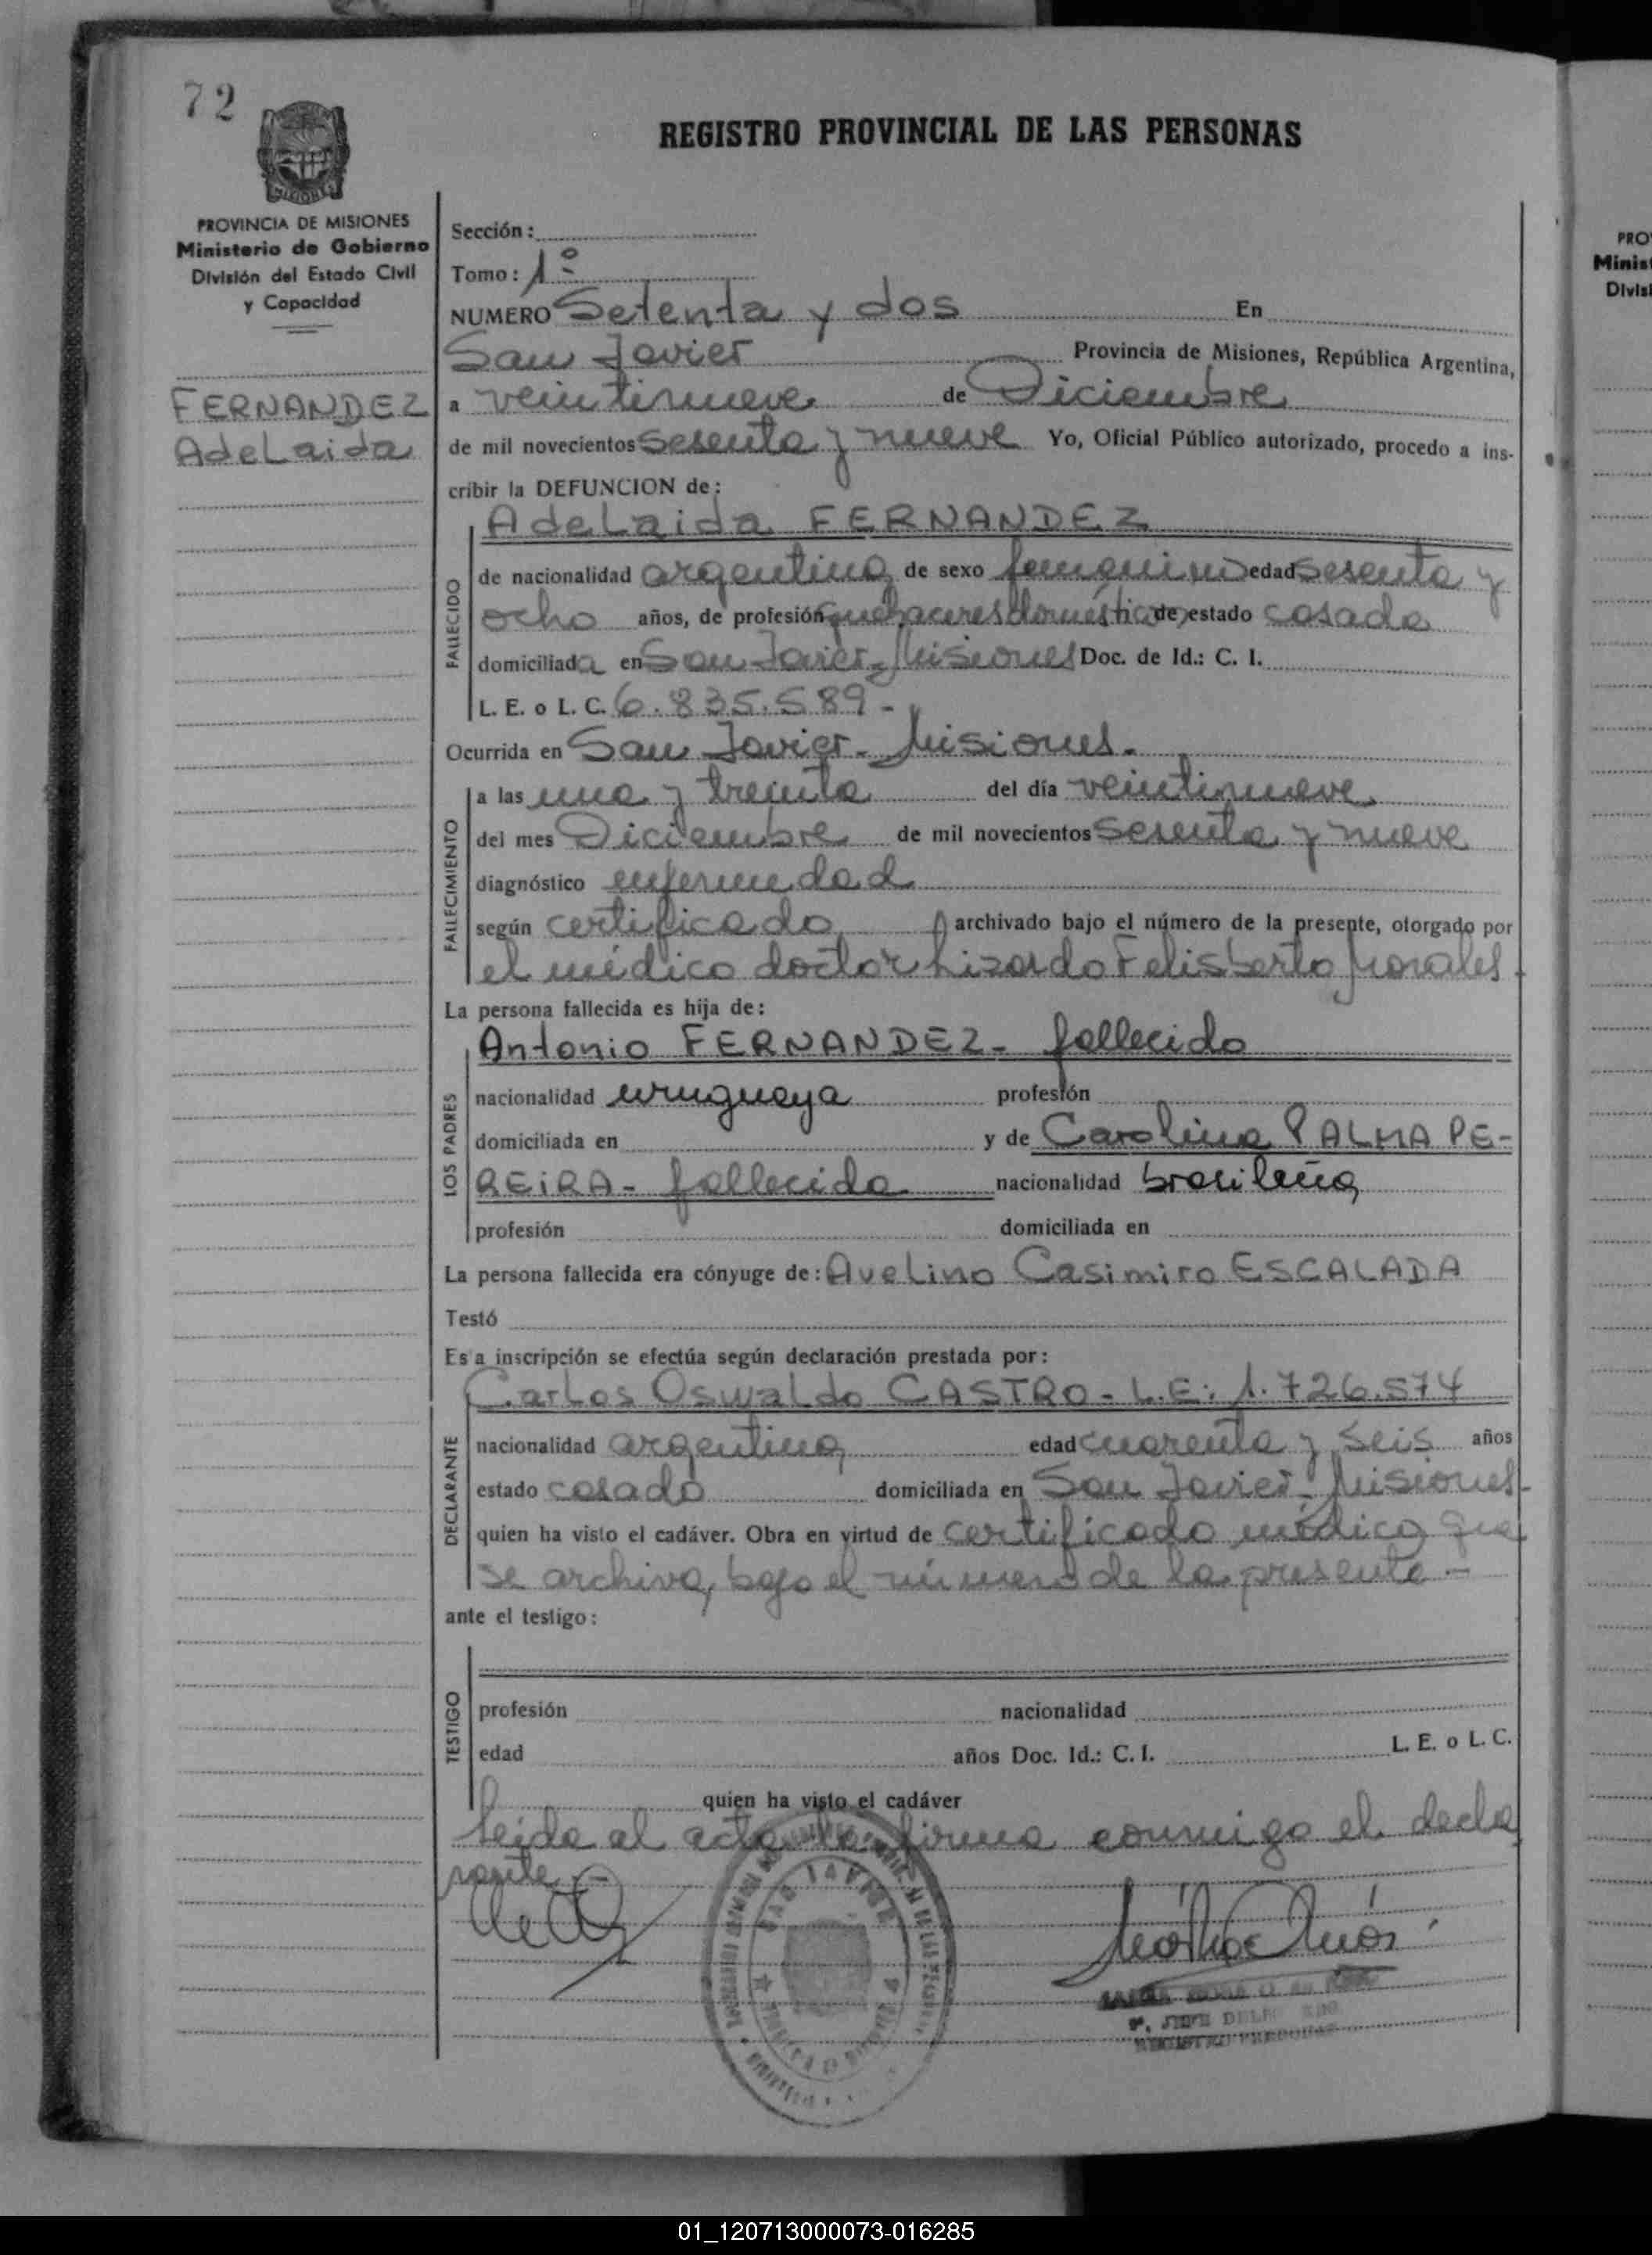 72
REGISTRO PROVINCIAL DE LAS PERSONAS
MISIONES
PROVINCIA DE MISIONES
Ministerio de Gobierno
División del Estado Civil
y Capacidad
FERNANDEZ
Adelaida
Sección:
Tomo: 1º
NUMERO Setenta y dos En
San Javier Provincia de Misiones, República Argentina,
a veintinueve de Diciembre
de mil novecientos sesenta y nueve Yo, Oficial Público autorizado, procedo a ins-
cribir la DEFUNCION de:
Adelaida FERNANDEZ
FALLECIDO
de nacionalidad argentina, de sexo femenino edad sesenta y
ocho años, de profesión quehaceres domésticos de estado casada
domiciliada en San Javier, Misiones Doc. de Id.: C. I.
L. E. o L. C. 6.835.589-
Ocurrida en San Javier- Misiones.
FALLECIMIENTO
a las una y treinta del día veintinueve
del mes Diciembre de mil novecientos sesenta y nueve
diagnóstico enfermedad
según certificado archivado bajo el número de la presente, otorgado por
el médico doctor Lizardo Felisberto Morales.
La persona fallecida es hija de:
LOS PADRES
Antonio FERNANDEZ- fallecido
nacionalidad uruguaya profesión
domiciliada en y de Carolina PALMA PE-
REIRA- fallecida nacionalidad brasileña
profesión domiciliada en
La persona fallecida era cónyuge de: Avelino Casimiro ESCALADA
Testó
Es a inscripción se efectúa según declaración prestada por:
DECLARANTE
Carlos Oswaldo CASTRO- L.E: 1.726.574
nacionalidad argentina, edad cuarenta y seis años
estado casado domiciliada en San Javier- Misiones-
quien ha visto el cadáver. Obra en virtud de certificado médico que
se archiva, bajo el número de la presente-
ante el testigo:
TESTIGO
profesión nacionalidad
edad años Doc. Id.: C. I. L. E. o L. C.
quien ha visto el cadáver
Leida el acta, la firma conmigo el decla
rante.-
SAN JAVIER
PRO
Minis
Divisi
01_120713000073-016285